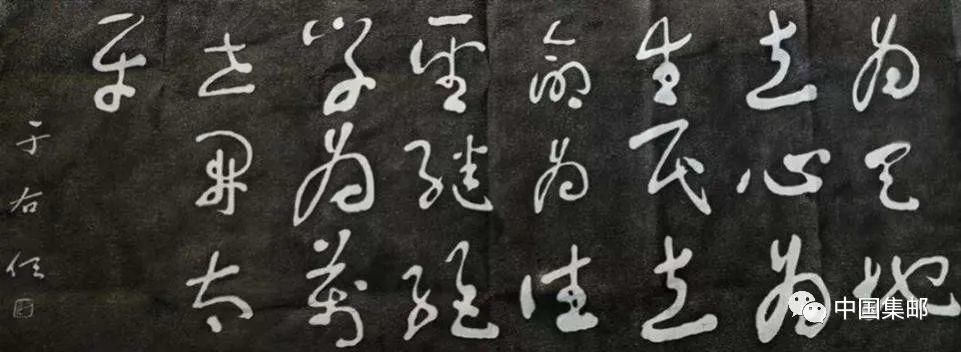 为天地
立心为
生民立
命为往
圣继绝
学为万
世开太
平
于右任
中国集邮